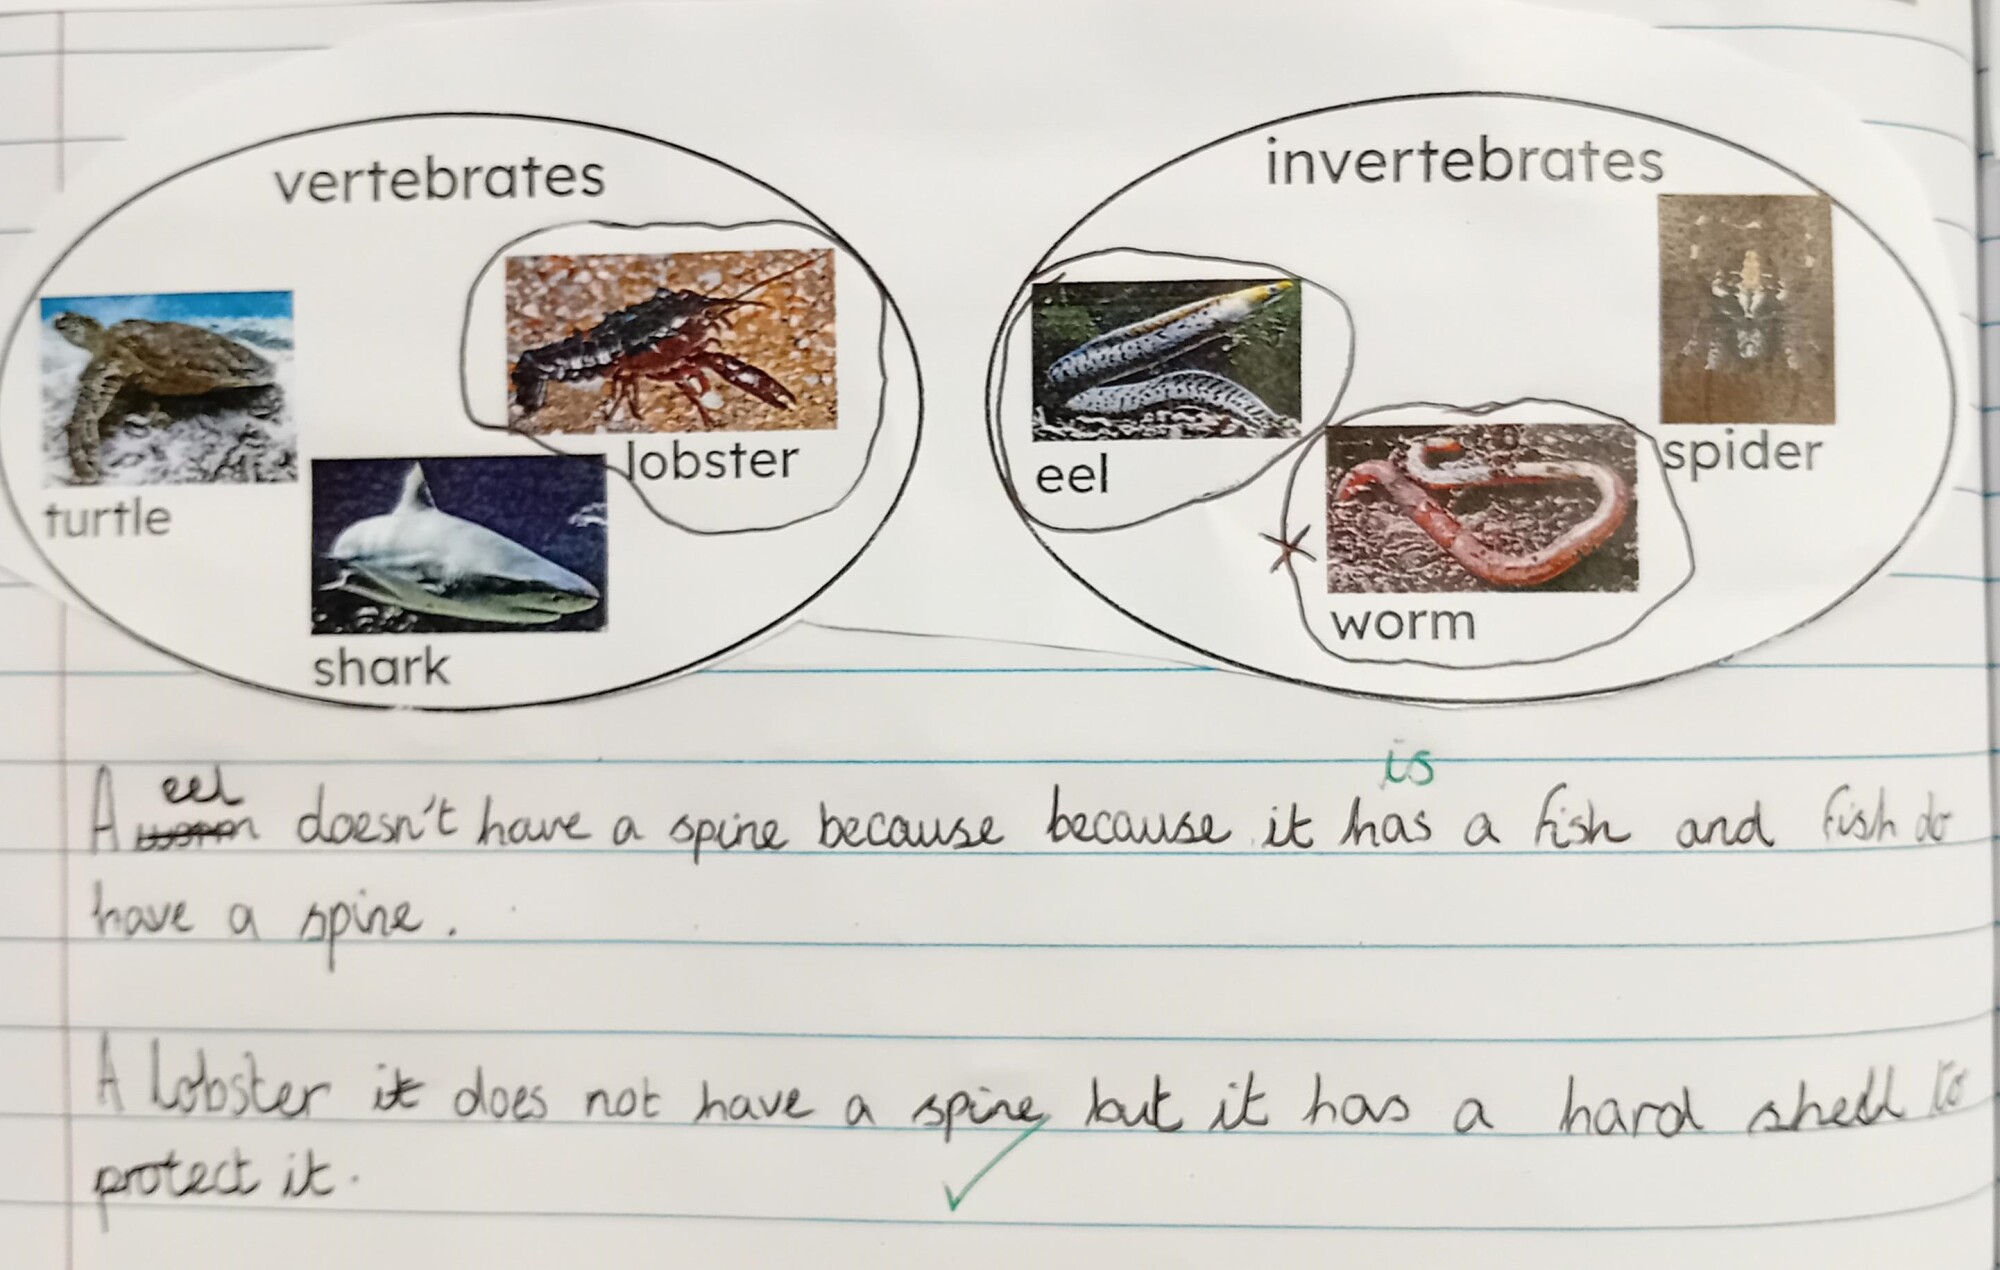 vertebrates
invertebrates
turtle
lobster
shark
eel
spider
worm
is
eel
A worm doesn't have a spine because because it has a fish and fish do
have a spine.
A lobster it does not have a spine but it has a hard shell to
protect it.